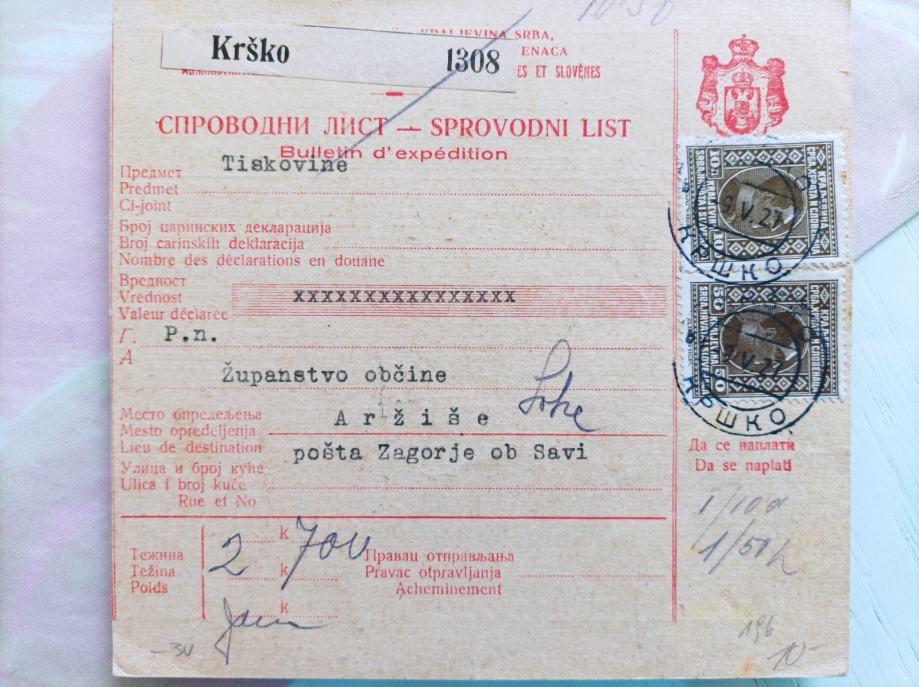 10.50
KRALJEVINA SRBA,
ENACA
ES ET SLOVÈNES
Krško 1308
СПРОВОДНИ ЛИСТ — SPROVODNI LIST
Bulletin d'expédition
Предмет Tiskovine
Predmet
Ci-joint
Број царинских декларација
Broj carinskih deklaracija
Nombre des déclarations en douane
Вредност
Vrednost xxxxxxxxxxxxxxxx
Valeur déclarée
Г. P.n.
А
Županstvo občine
Место опредељења Aržiše
Mesto opredeljenja
Lieu de destination pošta Zagorje ob Savi
Улица и број куће
Ulica i broj kuće
Rue et No
k
Тежина 2 700 Правац отправљања
Težina k Pravac otpravljanja
Poids Acheminement
k
10
КРШКО
V.27
50
КРШКО
V.27
Да се наплати
Da se naplati
1/10
1/50
196
10-